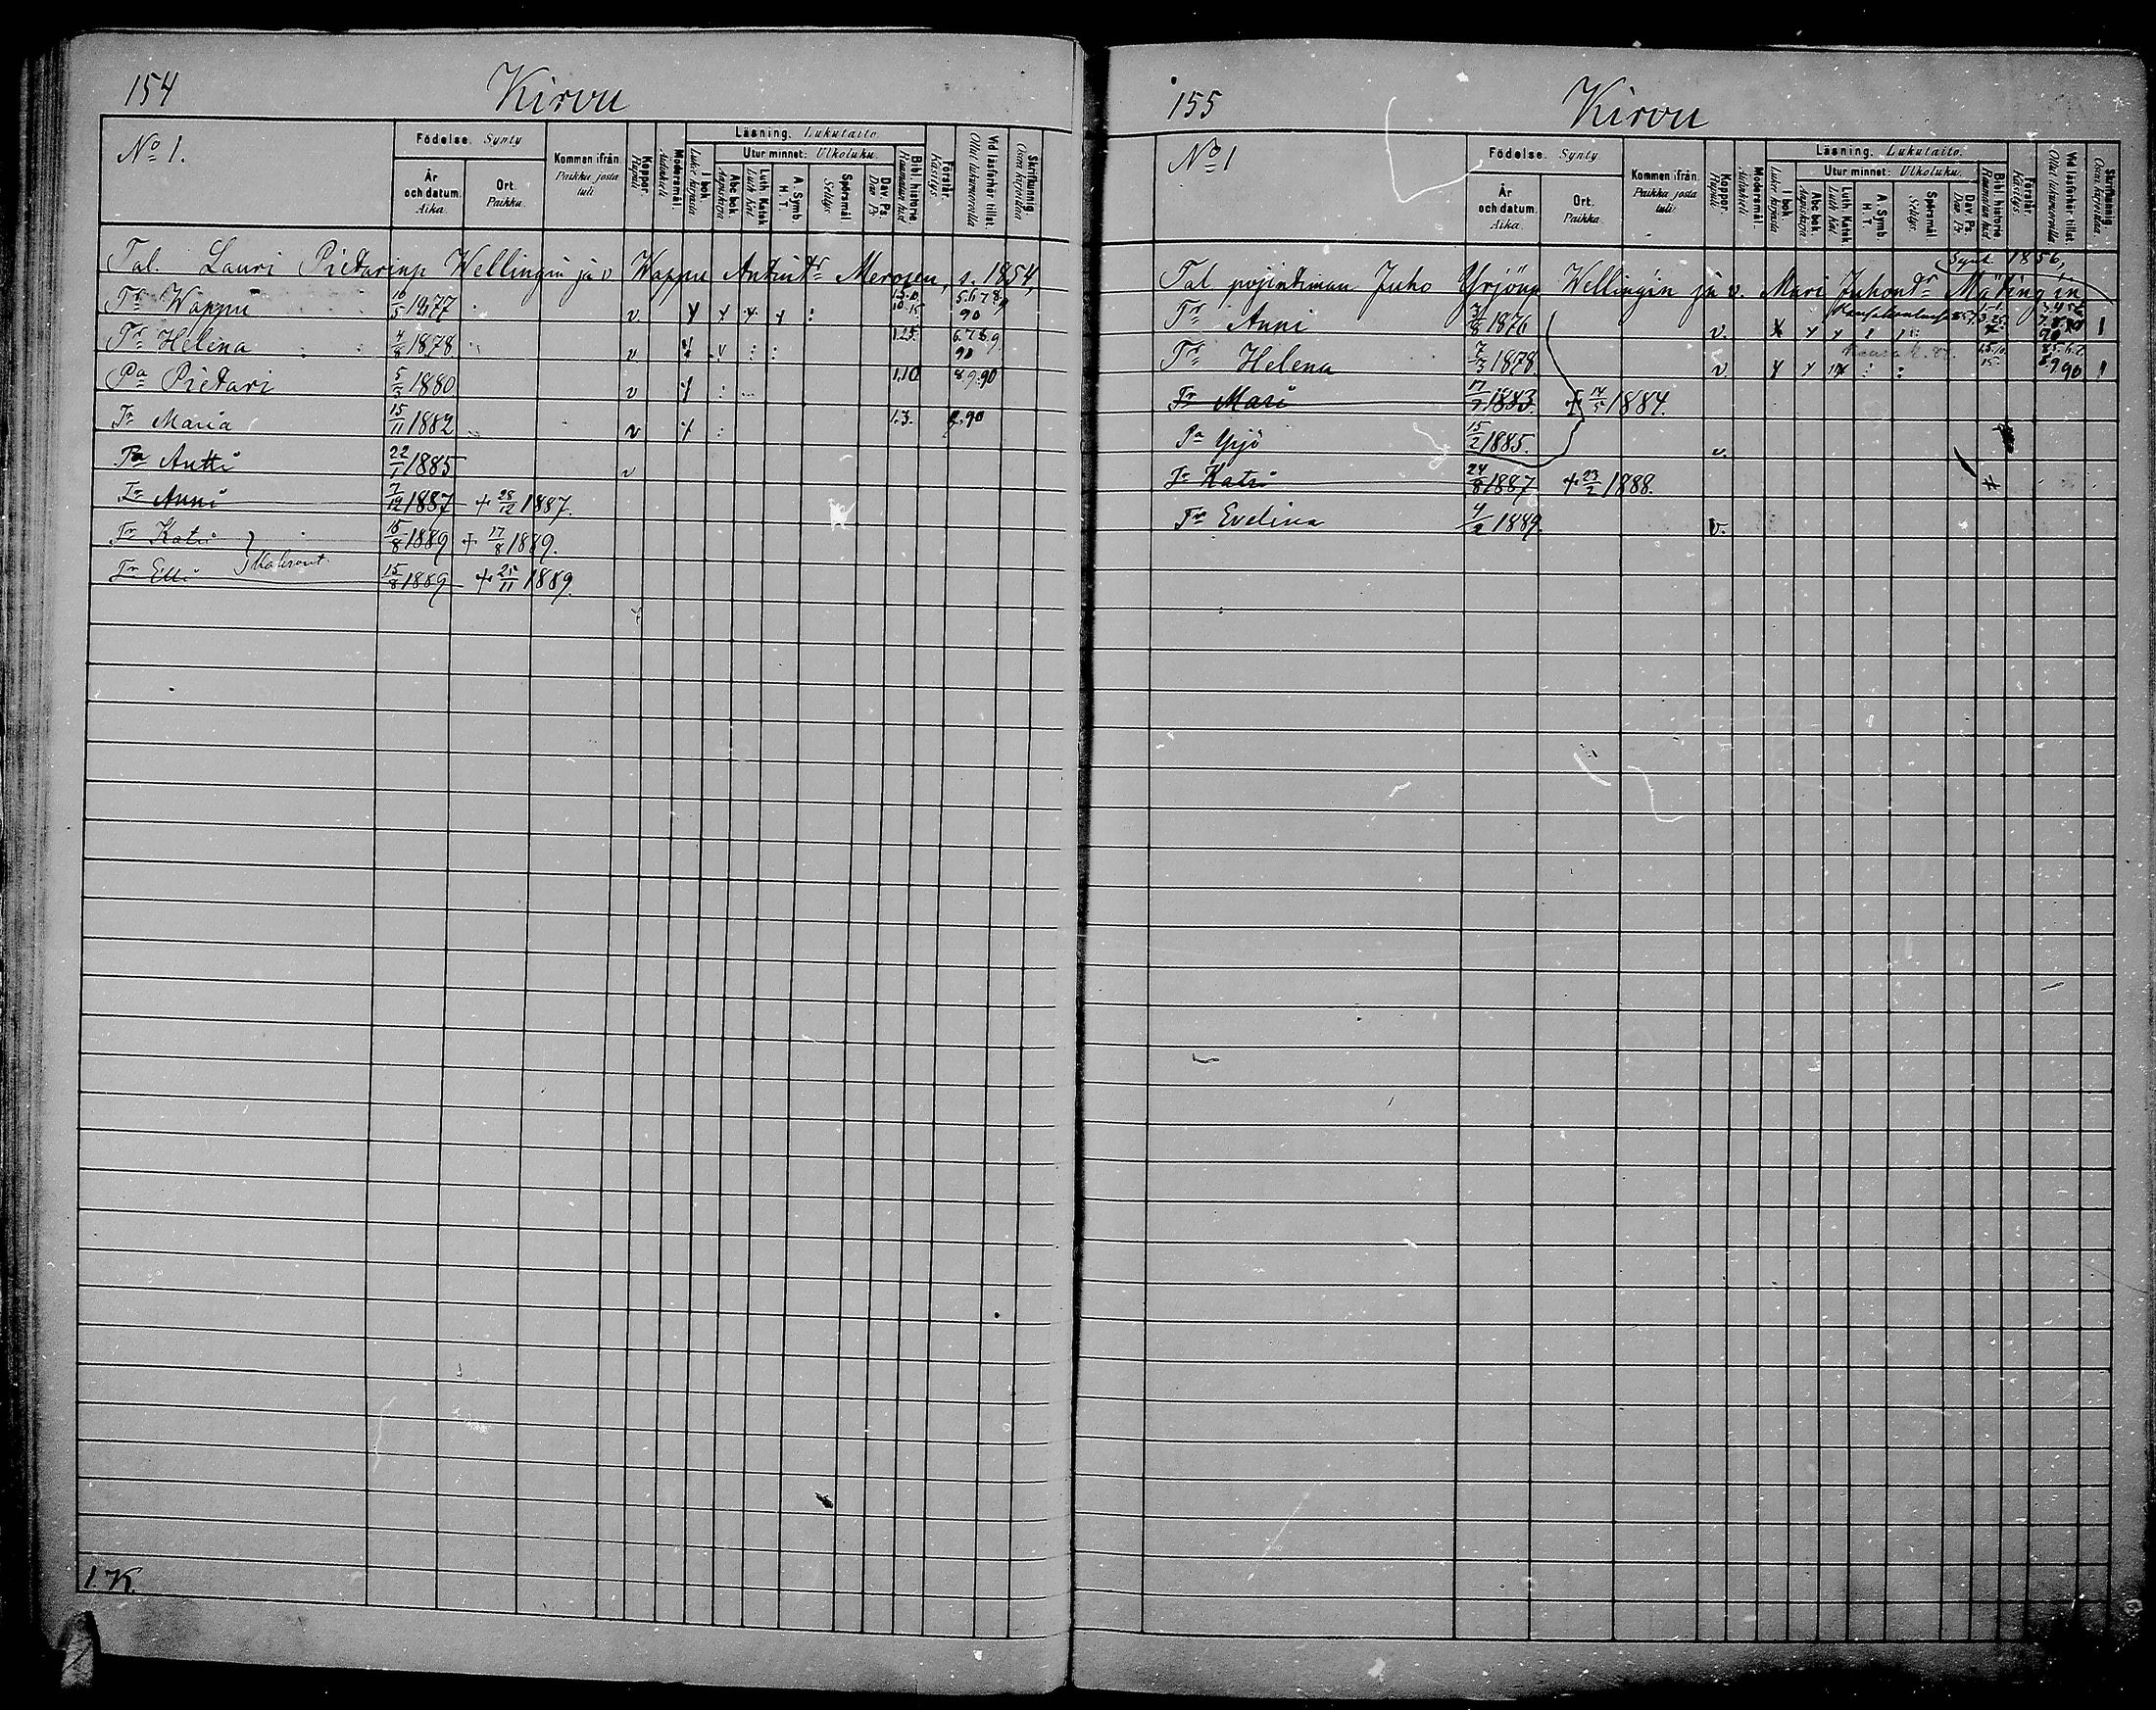 154 Kirvu
No 1.
Födelse. Synty
År och datum. Aika.
Ort. Paikka.
Kommen ifrån Paikka, josta tuli.
Koppor. Rupuli
Modersmål. Äidinkieli
Läsning. Lukutaito.
I bok Lukee kirjasta
Utur minnet: Ulkoluku.
Abc bok. Aapiskirja
Luth. Katek
A. Symb. H. T.
Spörsmål. Selitys
Dav. Ps. Dav. Ps
Bibl. historie Raamatun hist
Förstår. Käsitys.
Vid läsförhör tillst. Ollut lukuvuorolla
Skrifkunnig. Osaa kirjoittaa
Tal. Lauri Pietarinp Wellingin ja v Wappu Antintr Merosen, s. 1854,
Tr Wappu 10/5 1877 v. 5 6 7 8 9 90
Tr Helena 4/8 1878 v 1.25. 6.7.8.9. 90
Pa Pietari 5/3 1880 v 1.10 8.9.90
Tr Maria 15/11 1882 v 1.3. 9.90
Pa Antti 22/1 1885 v
Tr Anni 7/12 1887 + 28/12 1887.
Tr Katri 15/8 1889 + 17/8 1889.
Tr Elli 15/8 1889 + 25/11 1889.
1.K.
155 Kirvu
No 1
Födelse. Synty
År och datum. Aika.
Ort. Paikka.
Kommen ifrån. Paikka, josta tuli.
Koppor. Rupuli
Modersmål. Äidinkieli
Läsning. Lukutaito.
I bok Lukee kirjasta
Utur minnet: Ulkoluku.
Abc bok. Aapiskirja
Luth. Katek
A. Symb. H. T.
Spörsmål. Selitys.
Dav. Ps. Dav. Ps
Bibl. historie Raamatun hist
Förstår. Käsitys.
Vid läsförhör tillst. Ollut lukuvuorolla
Skrifkunnig. Osaa kirjoittaa
Synt. 1856,
Tal pojintiman Juho Yrjönp Wellingin ja v. Mari Juhontr Mätingin
Tr Anni 31/8 1876 v. 90
Tr Helena 7/3 1878. v. 90
Tr Mari 17/7 1883. + 14/5 1884.
Pa Yrjö 15/2 1885. v.
Tr Katri 24/8 1887 + 23/2 1888.
Tr Evelina 4/2 1889. v.